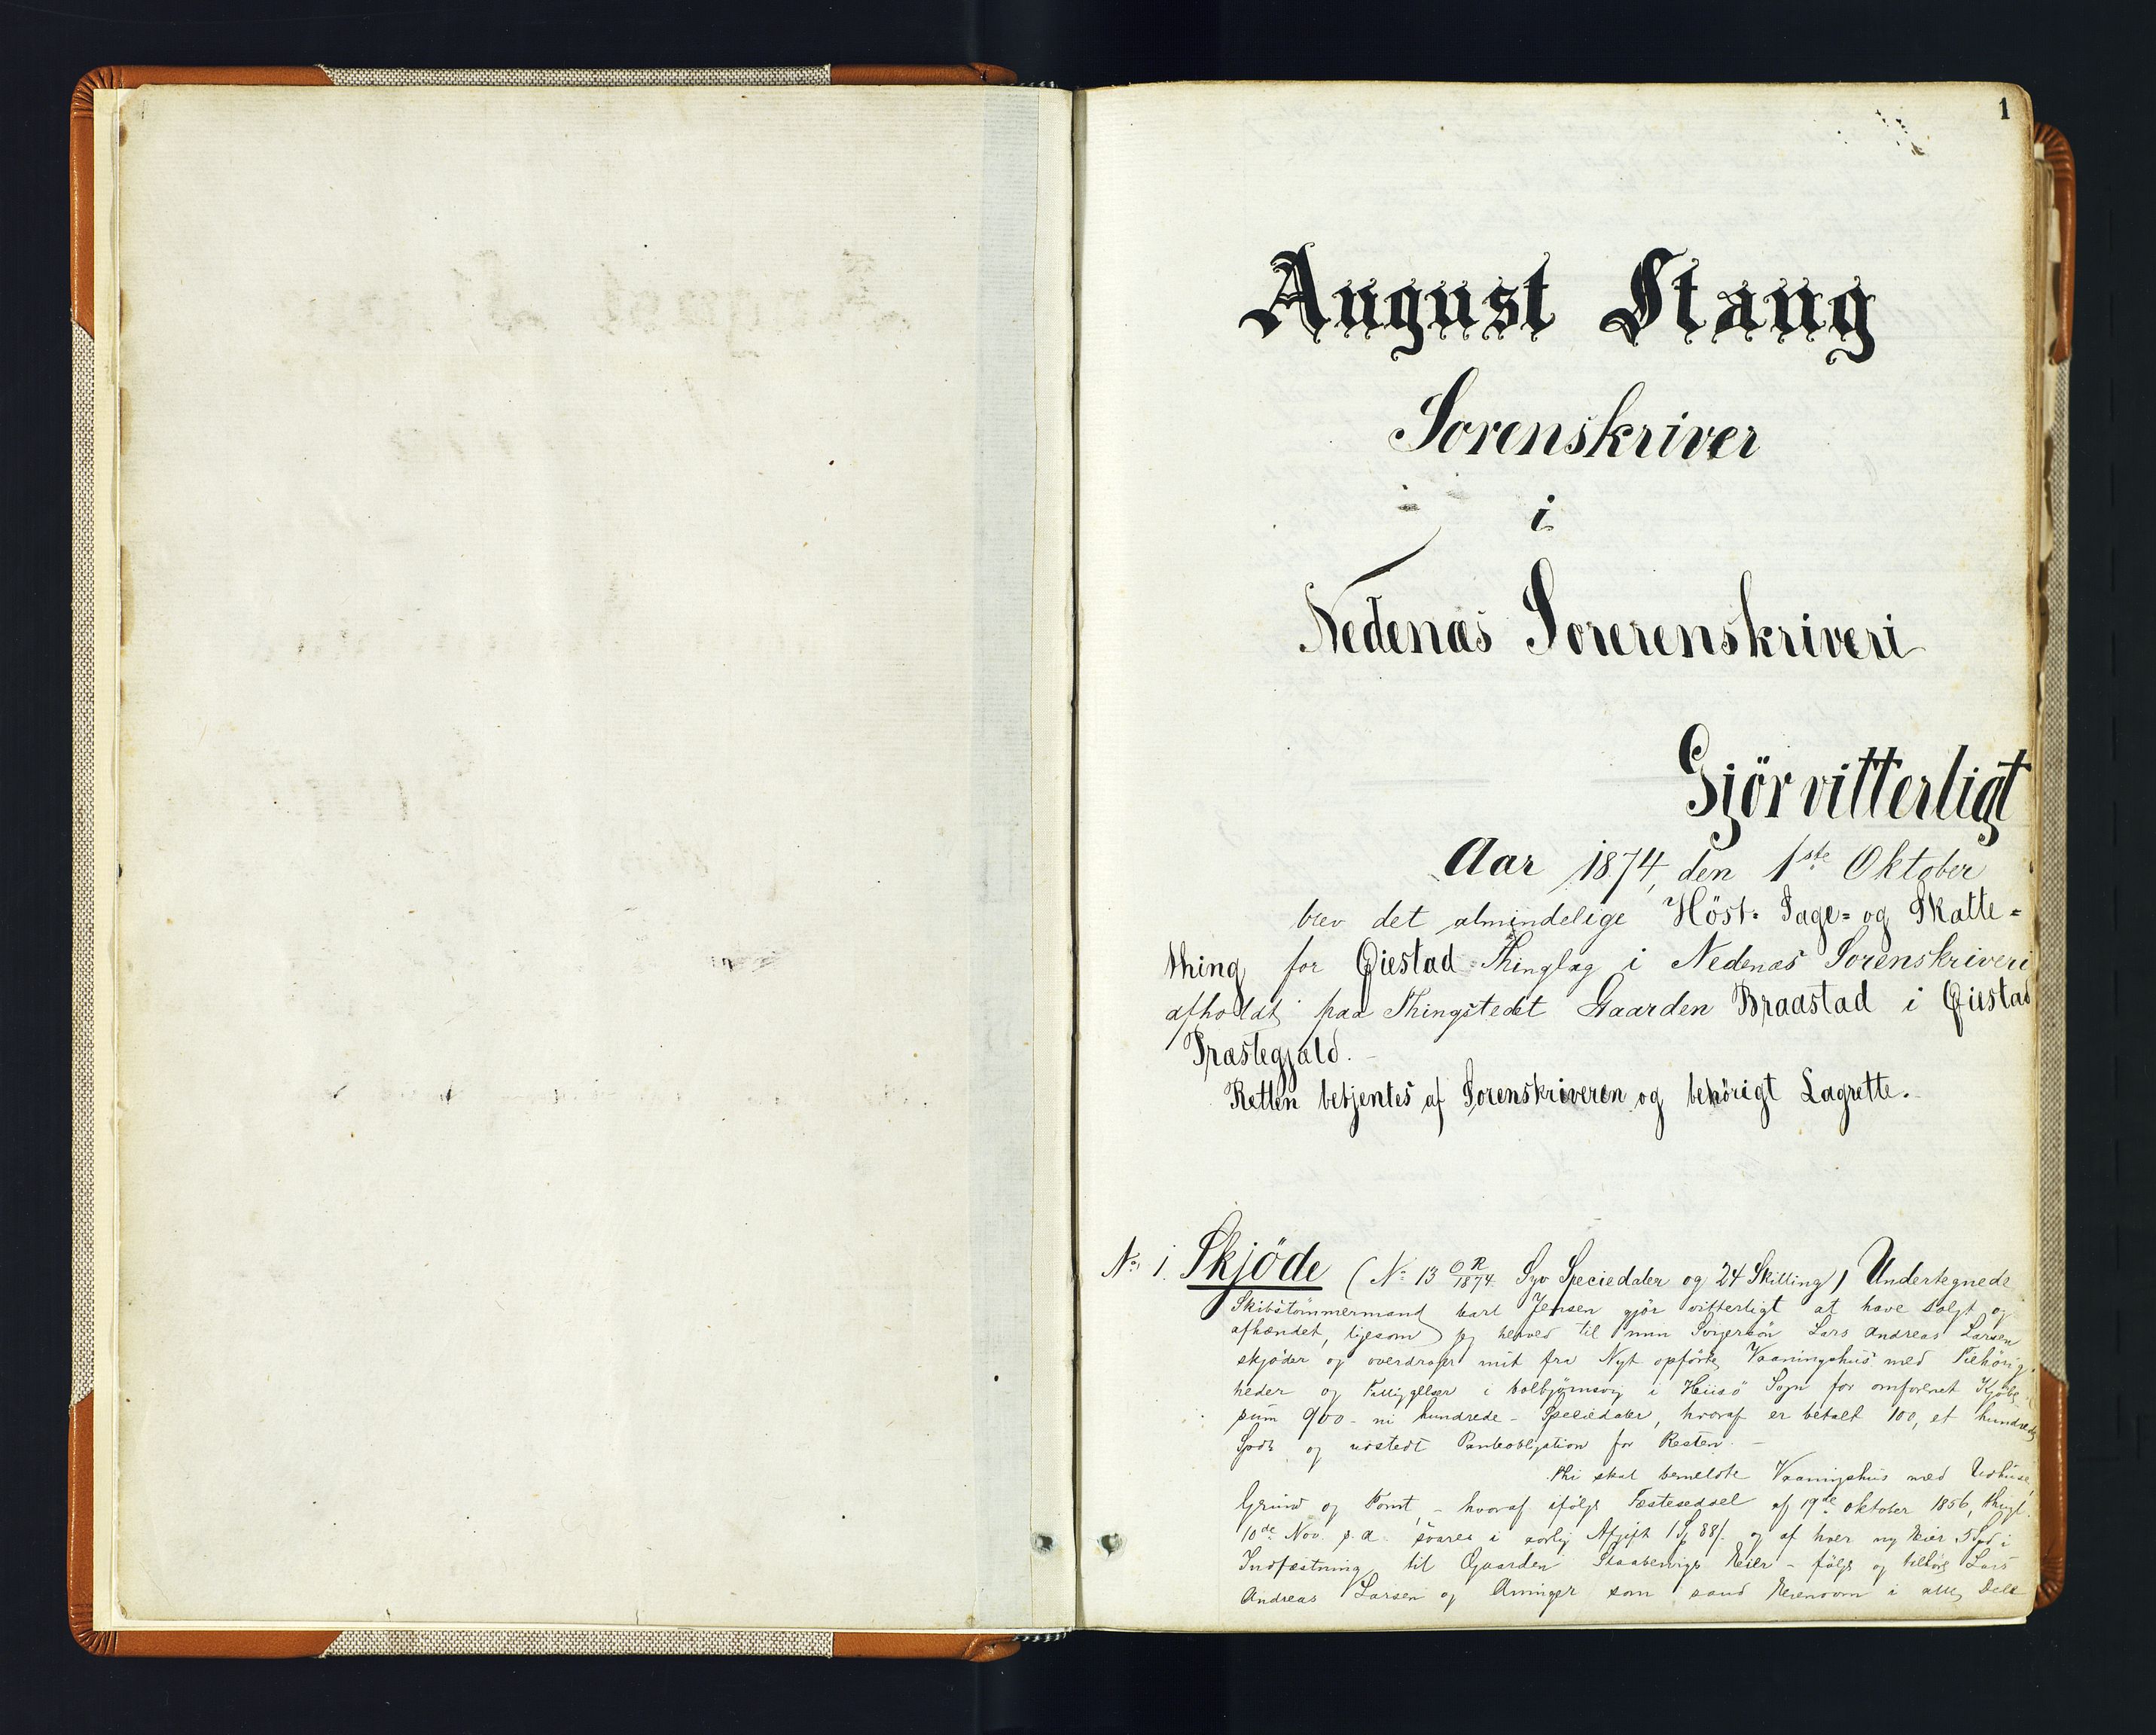 1
August Stang
Sorenskriver
i
Nedenæs Sorerenskriveri
Gjör vitterligt
Aar 1874, den 1ste Oktober
blev det almindelige Höst- Sage- og Skatte-
thing for Øiestad Thinglag i Nedenæs Sorenskriveri
afholdt paa Thingstedet Gaarden Braastad i Øiestad
Præstegjæld.
Retten betjentes af Sorenskriveren og behörigt Lagrette.
No 1. Skjöde (No 13 O R 1874. Syv Speciedaler og 24 Skilling) Undertegnede
Skibstömmermand Carl Jensen gjör vitterligt at have solgt og
afhændet, ligesom jeg herved til min Svigersön Lars Andreas Larsen
skjöder og overdrager mit fra Nyt opförte Vaaningshus med Tilhörig-
heder og Tilliggelser i Kolbjörnsvig i Hiisö Sogn for omforenet Kjöbe-
sum 900 - ni hundrede - Speciedaler, hvoraf er betalt 100, et hundrede
Spdr og udstedt Panteobligation for Resten. -
Thi skal bemeldte Vaaningshus med Udhuse,
Grund og Tomt, - hvoraf ifölge Fæstesedsel af 19de Oktober 1856, thingl.
10de Nov. s. a. svares i aarlig Afgift 1 Sp 88 s. og af hver ny Eier 5 Spd i
Indfæstning til Gaarden Eier - fölge og tilhöre Lars
Andreas Larsen og Arvinger som sand Eiendom i alle Dele